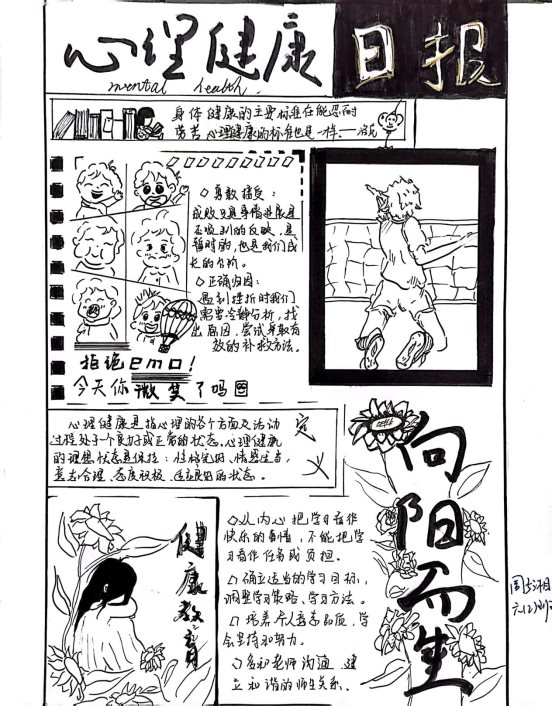 心理健康日报
mental health.
身体健康的主要标准在能忍耐
劳苦心理健康的标准也是一样.——洛克
○勇敢接受:
成败只是事情进展是
否顺利的反映,是
暂时的,也是我们成
长的台阶。
○正确归因:
遇到挫折时我们
需要冷静分析,找
出原因,尝试采取有
效的补救方法。
拒绝emo!
今天你微笑了吗
心理健康是指心理的各个方面及活动
过程处于一个良好或正常的状态。心理健康
的理想状态是保持:性格完好、情感适当、
意志合理、态度积极、适应良好的状态。
定义
向阳而生
健康教育
○从内心把学习看作
快乐的事情,不能把学
习看作任务或负担。
○确立适当的学习目标,
调整学习策略、学习方法。
○培养个人意志品质,学
会坚持和努力。
○多和老师沟通,建
立和谐的师生关系。